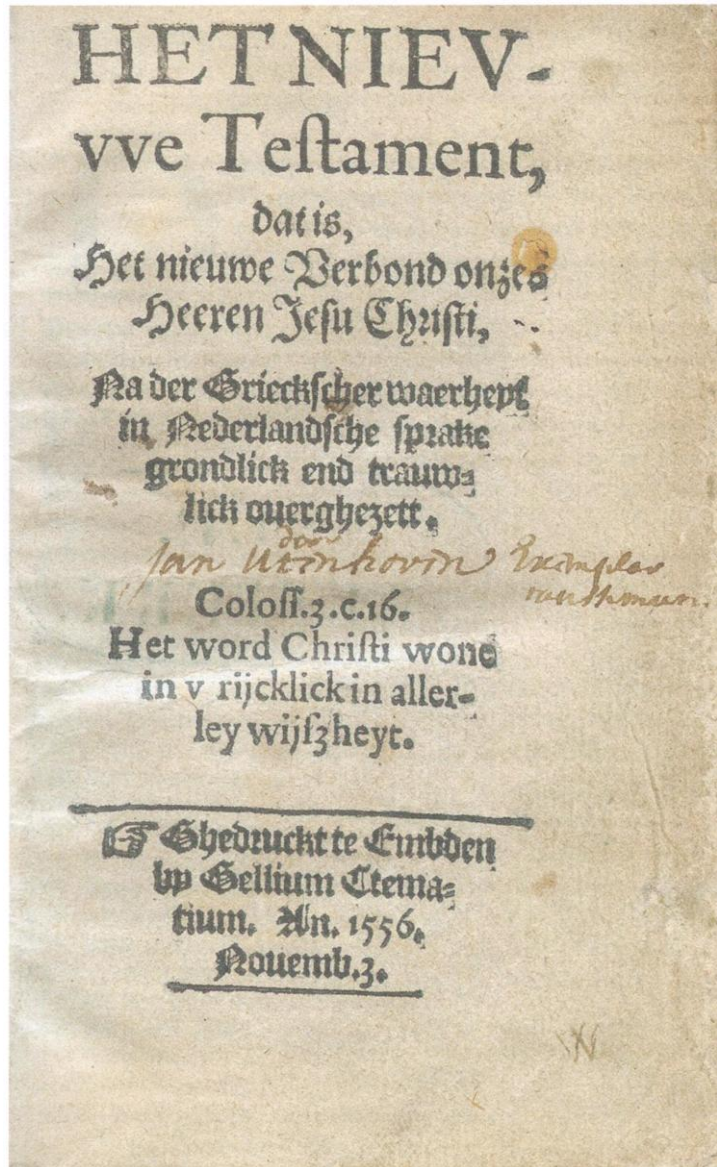 HET NIEV-
vve Teſtament,
dat is,
Het nieuwe Verbond onzes
Heeren Jeſu Chriſti,
Na der Grieckſcher waerheyt
in Nederlandſche ſprake
grondlick end trauw-
lick ouerghezett.
door
Jan Utenhoven Exemplar
Coloſſ.3.c.16.
Het word Chriſti wone
in v rijcklick in aller-
ley wijſzheyt.
☞ Ghedruckt te Embden
by Gellium Ctema-
tium. An. 1556.
Nouemb.3.